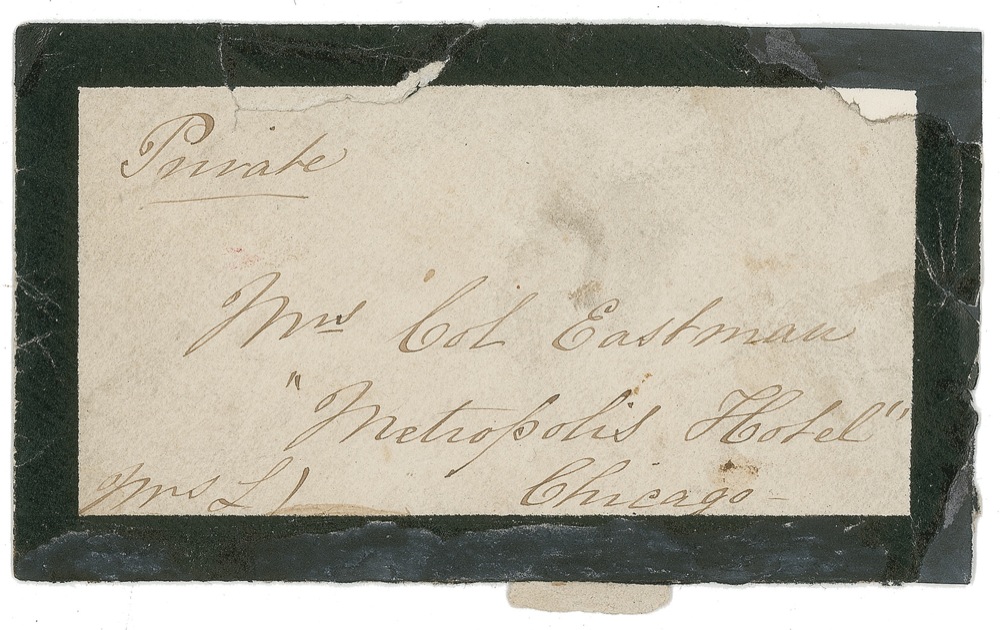 Private
Mrs Col Eastman
"Metropolis Hotel"
Chicago-
Mrs L)